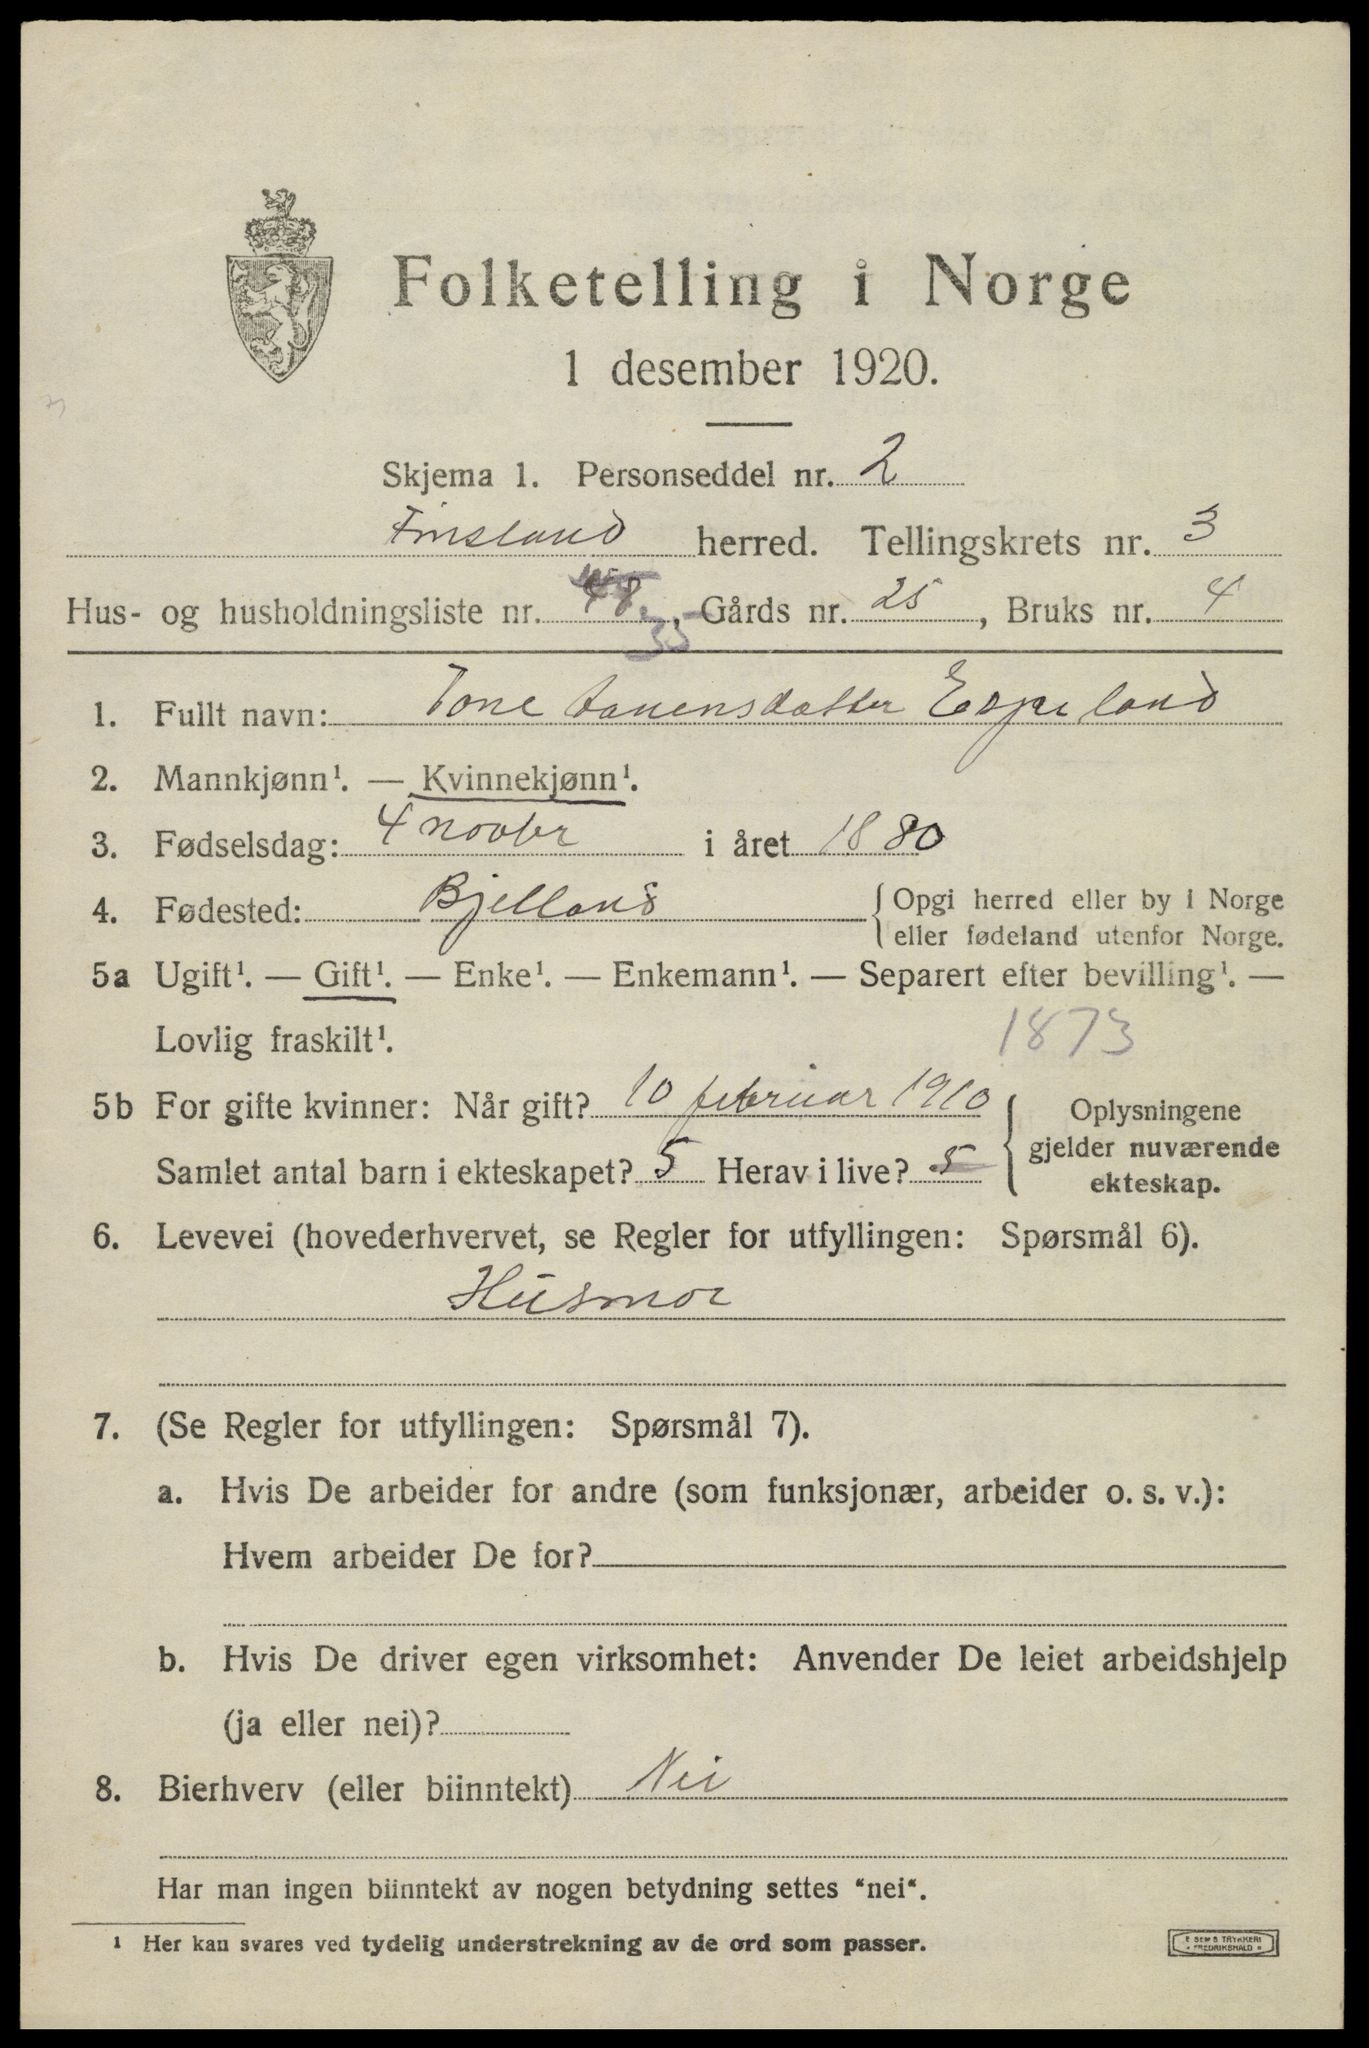 Folketelling i Norge
1 desember 1920.
Skjema 1. Personseddel nr. 2
Finsland herred. Tellingskrets nr. 3
Hus- og husholdningsliste nr. 48, Gårds nr. 25, Bruks nr. 4
35
1. Fullt navn: Tone
2. Mannkjønn¹. — Kvinnekjønn¹.
3. Fødselsdag: 4 novbr i året 1880
4. Fødested: Bjelland { Opgi herred eller by i Norge
eller fødeland utenfor Norge.
5a Ugift¹. — Gift¹. — Enke¹. — Enkemann¹. — Separert efter bevilling¹. —
Lovlig fraskilt¹. 1873
5b For gifte kvinner: Når gift? 10 februar 1910
Samlet antal barn i ekteskapet? 5 Herav i live? 5
{ Oplysningene
gjelder nuværende
ekteskap.
6. Levevei (hovederhvervet, se Regler for utfyllingen: Spørsmål 6).
Husmor
7. (Se Regler for utfyllingen: Spørsmål 7).
a. Hvis De arbeider for andre (som funksjonær, arbeider o. s. v.):
Hvem arbeider De for?
b. Hvis De driver egen virksomhet: Anvender De leiet arbeidshjelp
(ja eller nei)?
8. Bierhverv (eller biinntekt) Nei
Har man ingen biinntekt av nogen betydning settes “nei“.
¹ Her kan svares ved tydelig understrekning av de ord som passer.
E SEMS TRYKKERI
FREDRIKSHALD